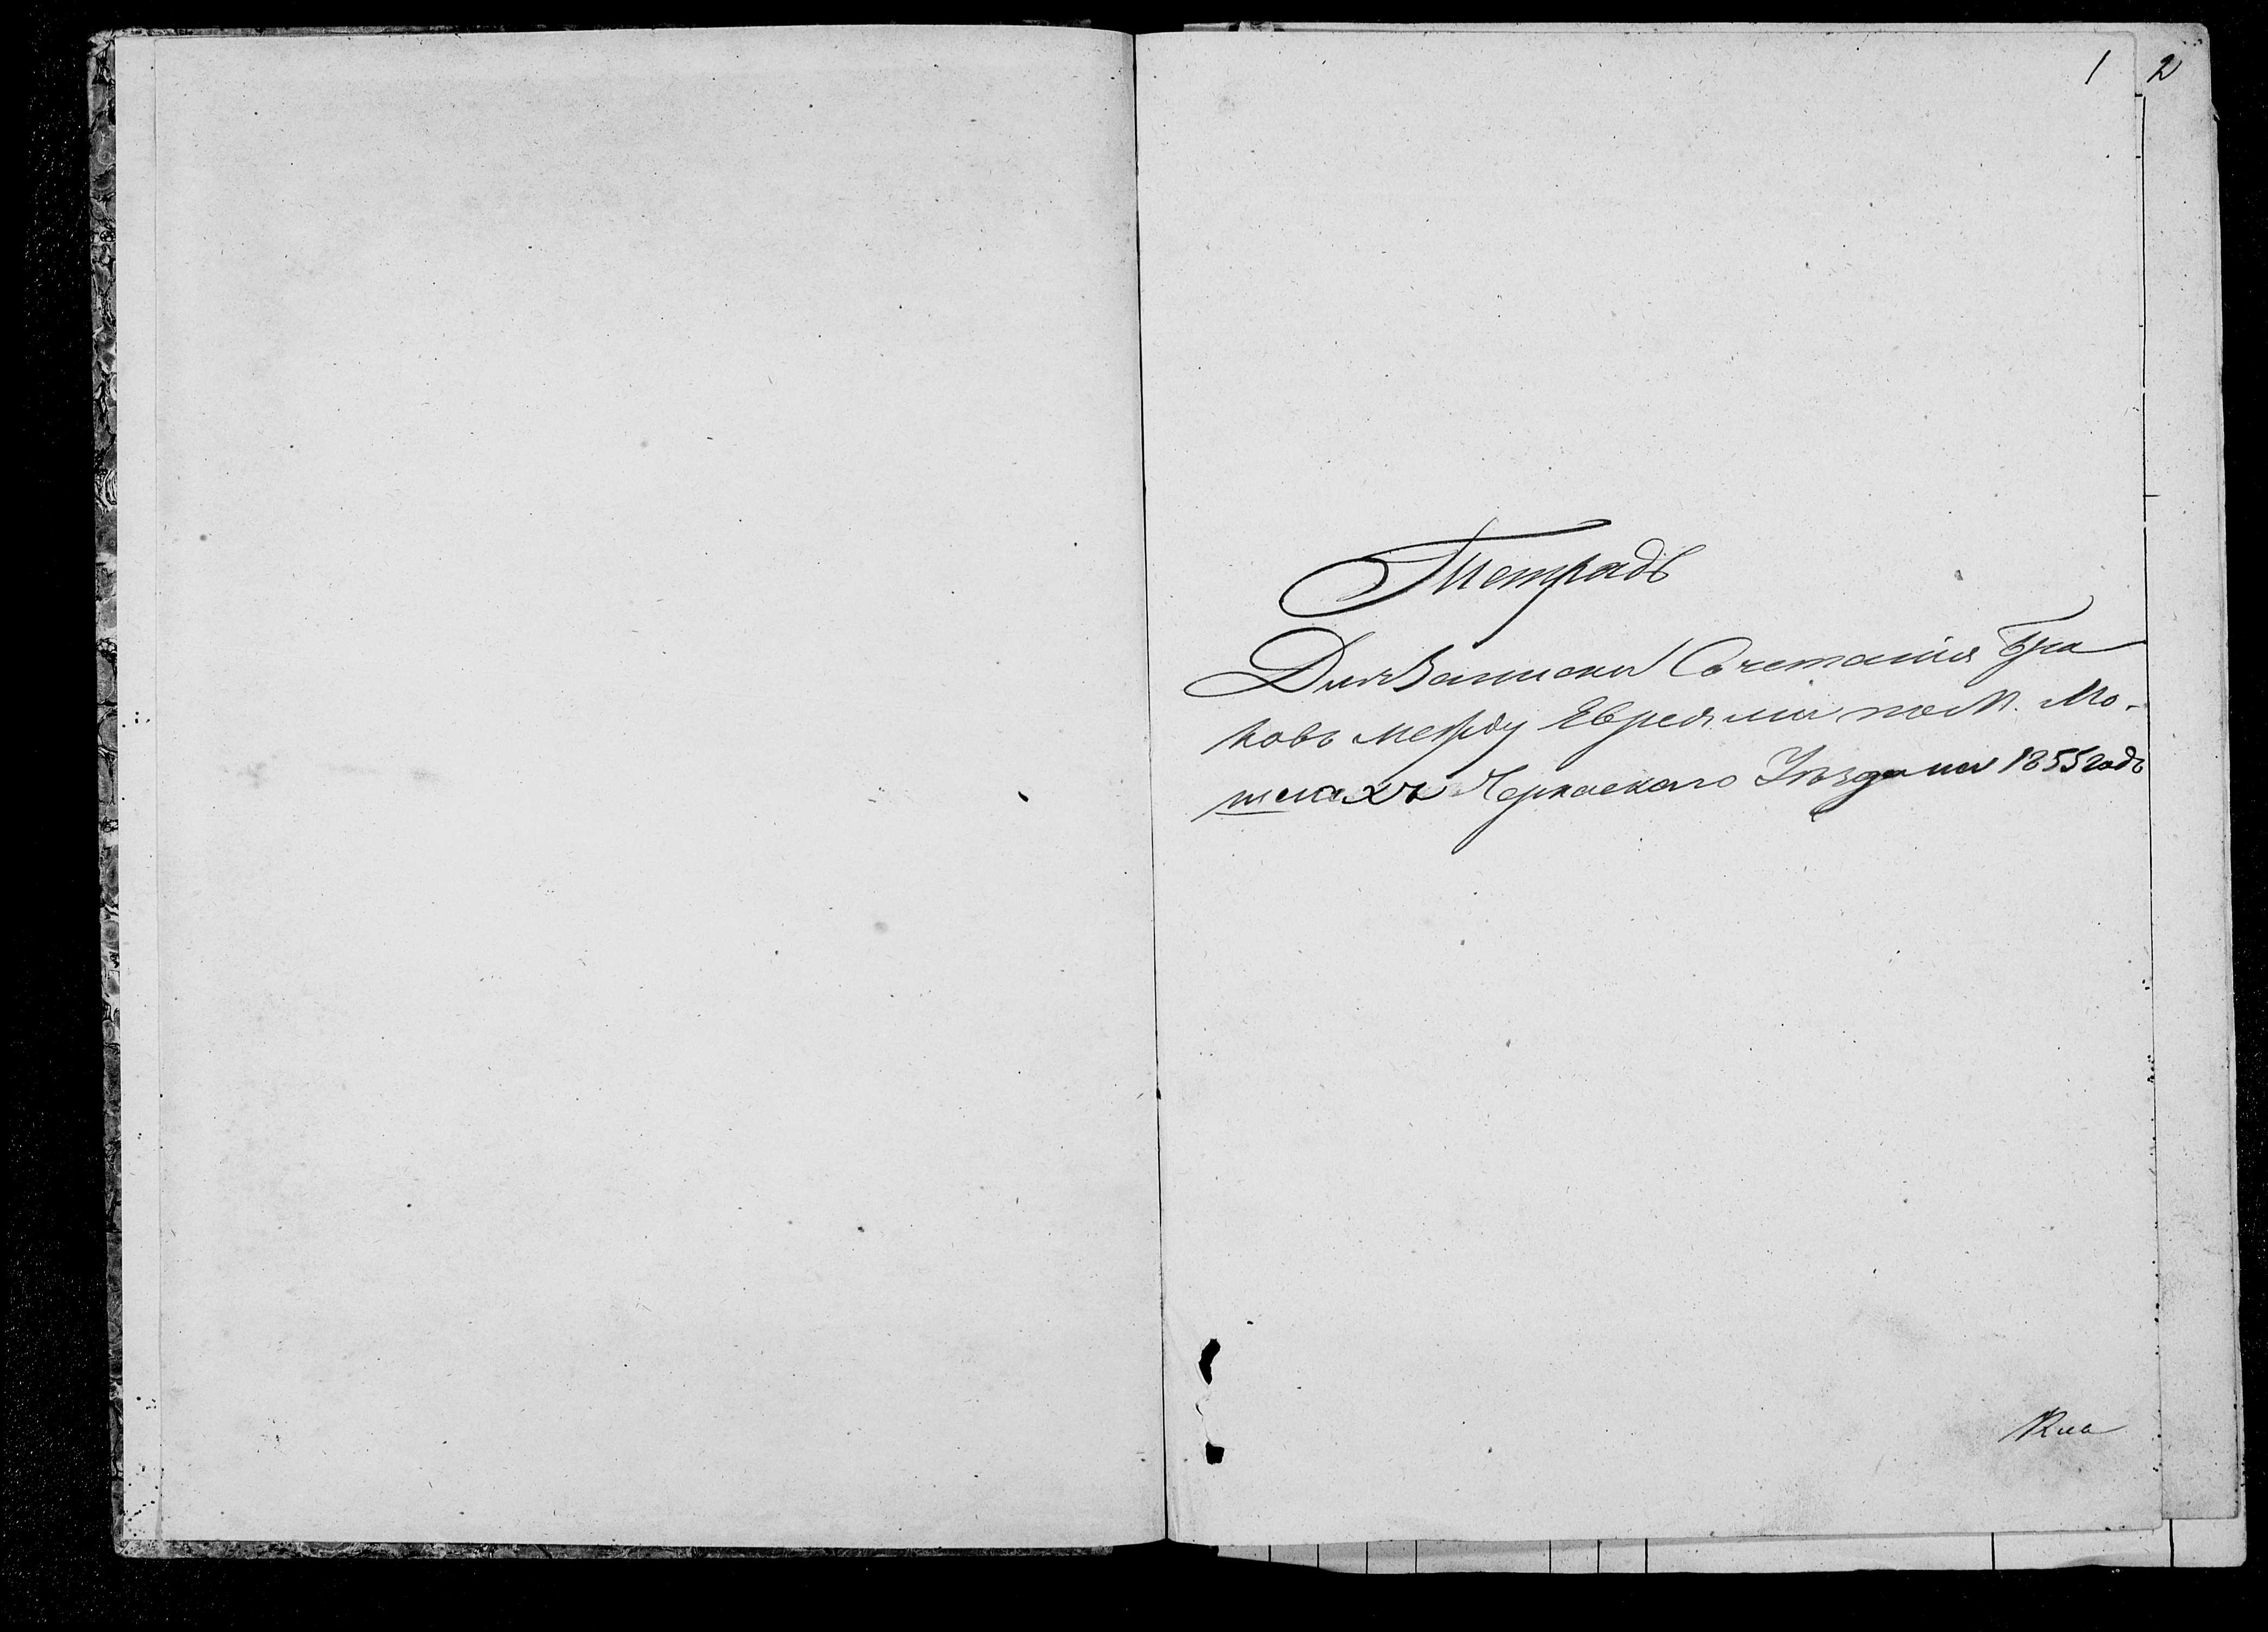 1 2
Тетрадь
Для Записки Сочетания Бра
ковъ между Евреями по М. Мо-
шнахъ Черкаскаго Уѣзда на 1855 годъ